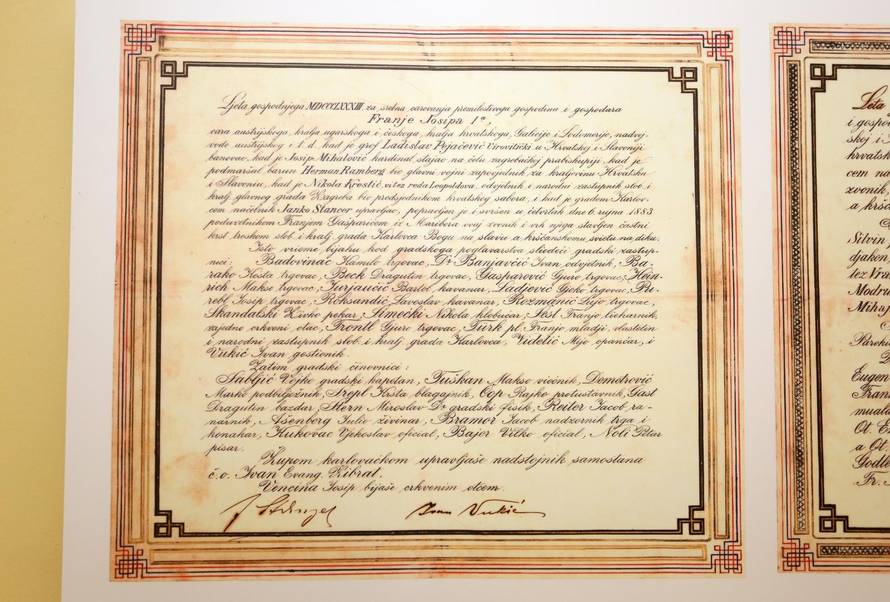 Ljeta gospodnjega MDCCCLXXXIII za sretna carovanja premilostivoga gospodina i gospodara
Franje Josipa Iᵒ,
cara austrijskoga, kralja ugarskoga i českoga, kralja hrvatskoga, Galicije i Lodomerije, nadvoj-
vode austrijskog i. t. d. kad je grof Ladislav Pejačević Virovitički u Hrvatskoj i Slavoniji
banovao, kad je Josip Mihalović kardinal stajao na čelu zagrebačkoj prabiskupiji, kad je
podmaršal barun Herman Ramberg bio glavni vojni zapovjednik za kraljevinu Hrvatsku
i Slavoniu, kad je Nikola Krestić, vitez reda Leopoldova, odvjetnik i narodni zastupnik slob. i
kralj. glavnog grada Zagreba bio predsjednikom hrvatskog sabora, i kad je gradom Karlov-
cem načelnik Janko Stancer upravljao, popravljen je i svršen u četvrtak dne 6. rujna 1883
poduzetnikom Franjom Gasparićem iz Maribora ovaj zvonik i vrh njega stavljen častni
krst troskom slob. i kralj. grada Karlovca Bogu na slavu a kršćanskomu svietu na diku.
Isto vrieme bijahu kod gradskoga poglavarstva sliedeći gradski zastup-
nici: Badovinac Kamilo trgovac, Dr. Banjavčić Ivan odvjetnik, Ba-
rako Kosta trgovac, Beck Dragutin trgovac, Gasparović Gjuro trgovac, Hein-
rich Makso trgovac, Jurjaučić Bartol kavanar, Ladjević Gjoko trgovac, Pu-
rebl Josip trgovac, Roksandić Lavoslav kavanar, Rozmanić Lujo trgovac,
Skandalski Živko pekar, Šimecki Nikola klobučar, Šost Franjo licitarnik,
zajedno crkveni otac, Trentl Gjuro trgovac, Türk pl. Franjo mladji, vlastelin
i narodni zastupnik slob. i kralj. grada Karlovca, Videtić Mijo opančar, i
Vukić Ivan gostionik.
Zatim gradski činovnici:
Sabljić Vojko gradski kapetan, Tuškan Makso viećnik, Demetrović
Marko podbilježnik, Trepl Krsta blagajnik, Cop Rajko protustavnik, Gast
Dragutin baždar, Stern Miroslav Dr. gradski fisik, Reiter Jacob ra-
narnik, Ašenberg Julio živinar, Bramor Jacob nadzornik trga i
konahar, Kukovac Vjekoslav oficial, Bajer Vilko oficial, Noti Petar
pisar.
Župom karlovačkom upravljaše nadstojnik samostana
č. o. Ivan Evang. Kibrat.
Vencina Josip bijaše crkvenim otcem.
Ivan Vukić
Ljeta
i gospod
skoj i
hrvatsk
cem na
zvonik,
a kršć
Silvin
djakon,
tez Vra
Modru
Mihaj
Paroki
Eugen
Fran
muald
Ot. E
a Ot.
Godle
Fr.